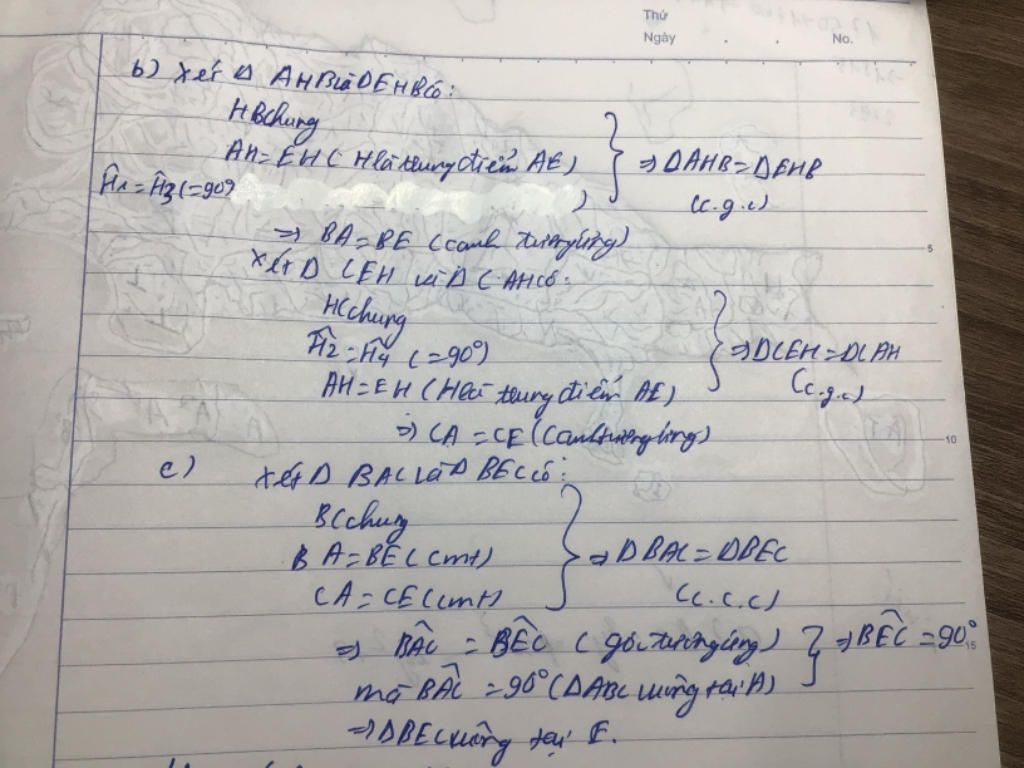 Thứ
Ngày . . No.
b) Xét Δ AHB và Δ EHB có:
HB chung
AH = EH ( H là trung điểm AE)
Ĥ1 = Ĥ3 (=90° )
} ⇒ ΔAHB = ΔEHB
(c.g.c)
⇒ BA = BE (cạnh tương ứng)
5
Xét Δ CEH và Δ CAH có:
HC chung
Ĥ2 = Ĥ4 (=90°)
AH = EH (H là trung điểm AE)
} ⇒ ΔCEH = ΔCAH
(c.g.c)
⇒ CA = CE (cạnh tương ứng)
10
c) Xét Δ BAC và Δ BEC có:
BC chung
BA = BE (cmt)
CA = CE (cmt)
} ⇒ ΔBAC = ΔBEC
(c.c.c)
⇒ BÂC = BÊC ( góc tương ứng)
mà BÂC = 90° (ΔABC vuông tại A)
} ⇒ BÊC = 90°
15
⇒ ΔBEC vuông tại E.